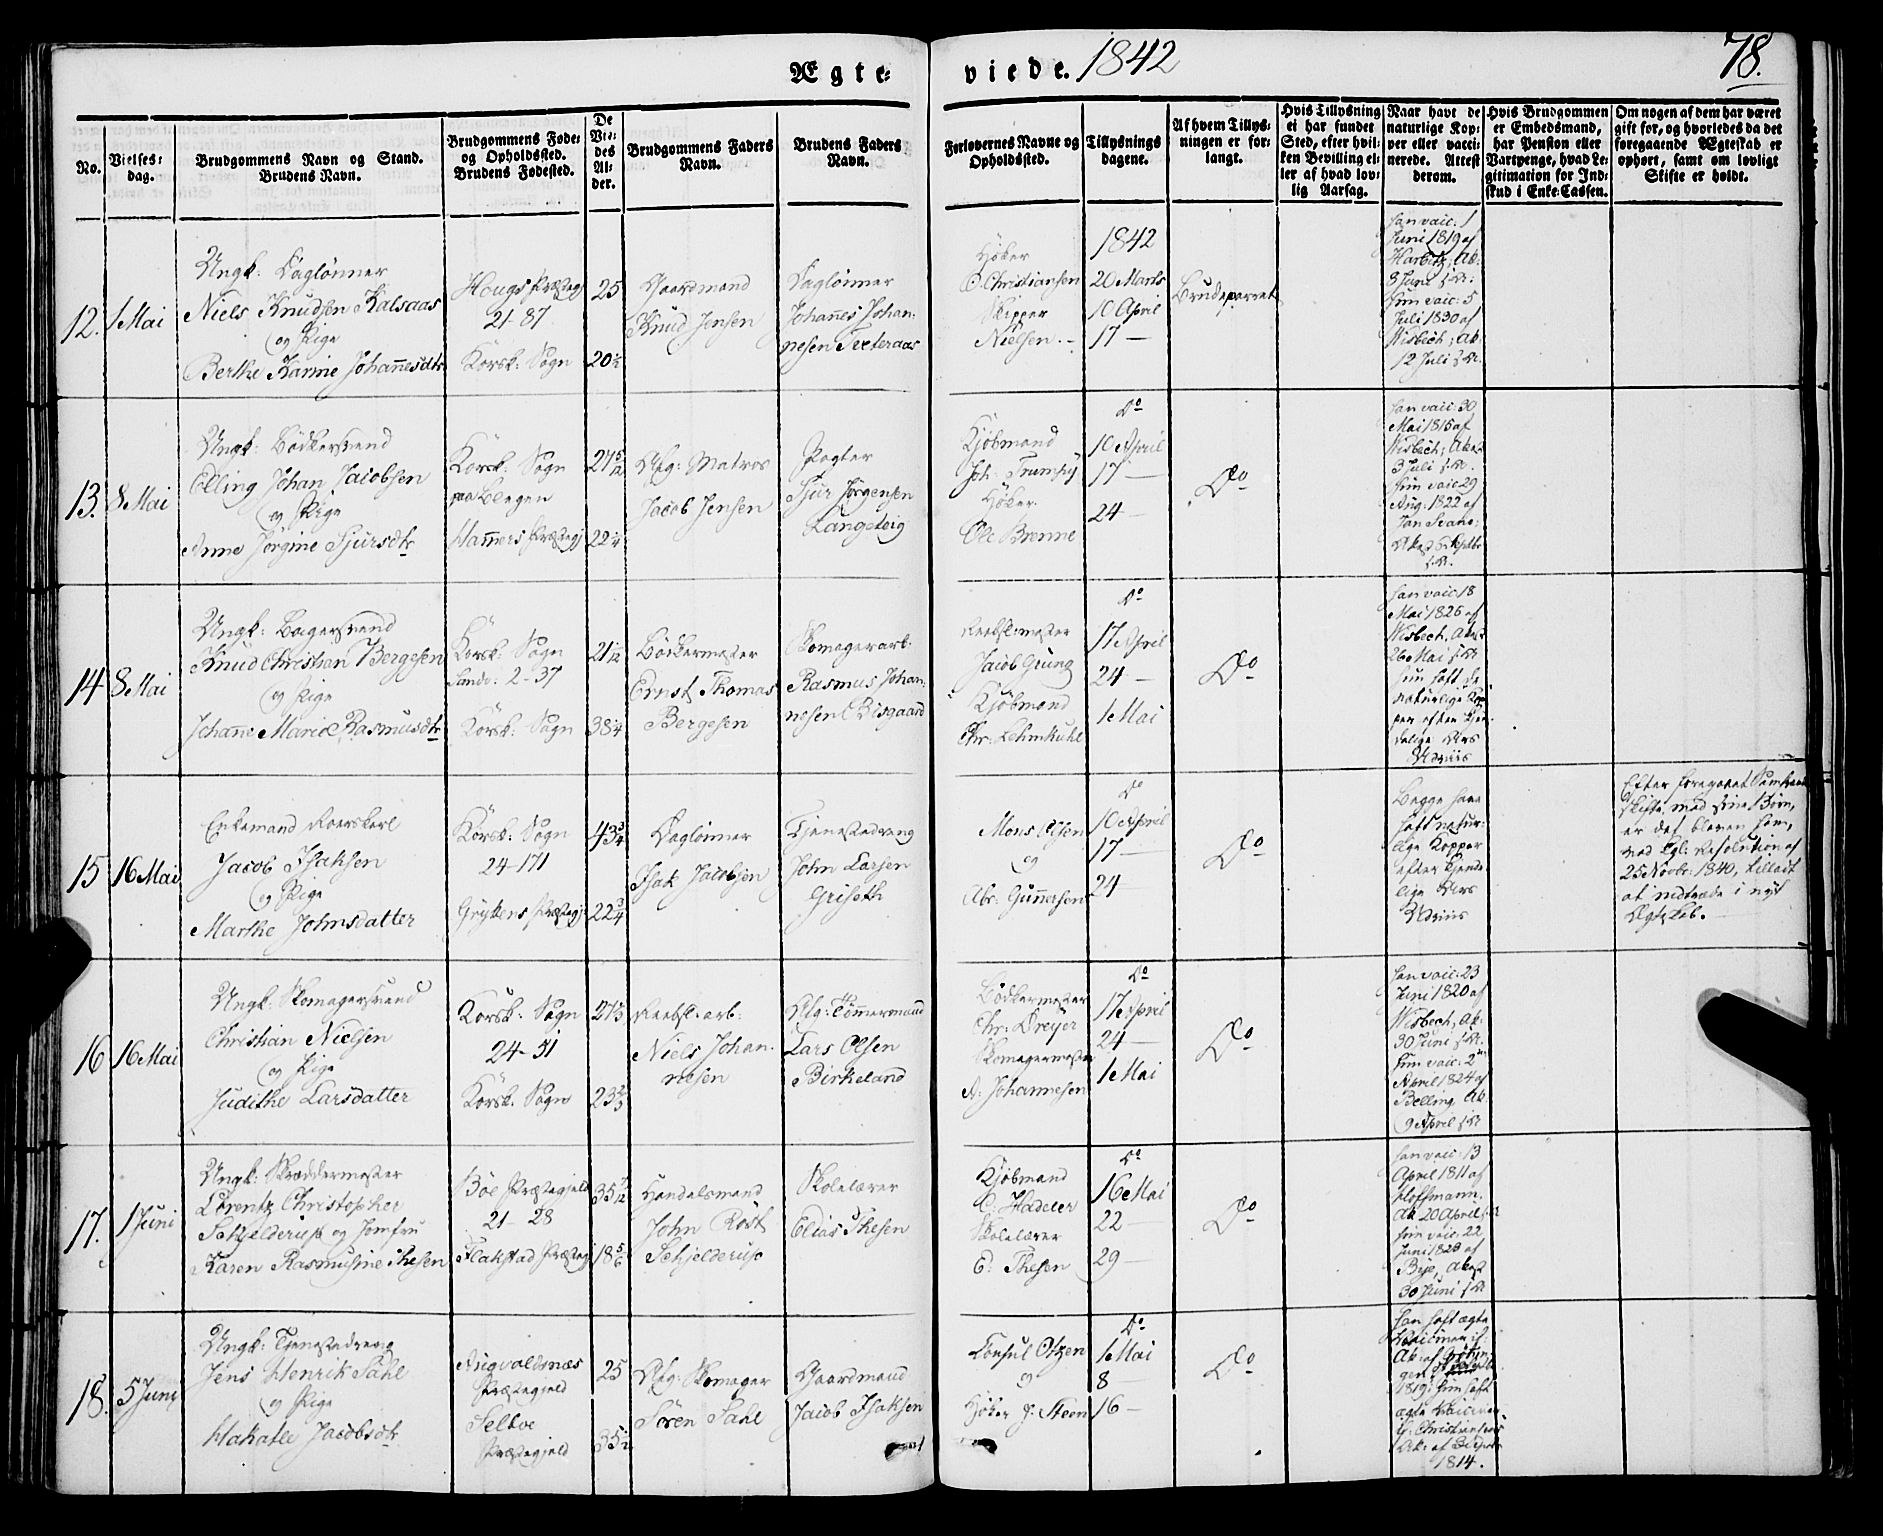 Ægte- viede. 1842
78.
No.
Vielses-
dag.
Brudgommens Navn og Stand.
Brudens Navn.
Brudgommens Føde-
og Opholdssted.
Brudens Fødested.
De
Vie-
des
Al-
der.
Brudgommens Faders
Navn.
Brudens Faders
Navn.
Forlovernes Navne og
Opholdssted.
Tillysnings
dagene.
Af hvem Tillys-
ningen er for-
langt.
Hvis Tillysning
ei har fundet
Sted, efter hvil-
ken Bevilling el-
ler af hvad lov-
lig Aarsag.
Naar havt de
naturlige Kop-
per eller vacci-
nerede. Attest
derom.
Hvis Brudgommen
er Embedsmand,
har Pension eller
Vartpenge, hvad Le-
gitimation for Ind-
skud i Enke-Cassen.
Om nogen af dem har været
gift før, og hvorledes da det
foregaaende Ægteskab er
ophørt, samt om lovligt
Skifte er holdt.
12. 1 Mai
Ungk: Daglønner
Niels Knudsen Kalsaas
og Pige
Berthe Karine Johannesdtr
Hougs Præstegj
21-87
Korsk: Sogn
25
20½
Gaardmand
Knud Jensen
Daglønner
Johannes Johan-
nesen Tveteraas
Høker
C. Christiansen
Skipper
Nielsen
1842
20 Marts
10 April
17 —
Brudeparret
han vacc: 1
Juni 1819 af
Harbitz, At:
8 Juni s. A.
hun vacc: 5
Juli 1830 af
Wisbech, At:
12 Juli s. A.
13. 8 Mai
Ungk: Bødkersvend
Elling Johan Jacobsen
og Pige
Anne Jørgine Sjursdtr
Korsk: Sogn
paa Bergen
Hammers Præstegj
27 5/12
22¼
Afg: Matros
Jacob Jensen
Pagter
Sjur Jørgensen
Langeteig
Kjøbmand
Joh: Trumpy
Høker
Ole Brenne
Do
10 April
17 —
24 —
Do
han vacc: 30
Mai 1815 af
Wisbech, Atest
3 Juli s. A.
hun vacc 29
Aug: 1822 af
14 8 Mai
Ungk: Bagersvend
Knud Christian Bergesen
og Pige
Johanne Marie Rasmusdtr
Korsk: Sogn
Landv: 2-37
Korsk: Sogn
21 1/12
38¼
Bødkermester
Ernst Thomas
Bergesen
Skomagerarb:
Rasmus Johan-
nesen Bisgaard
Reebsl:mester
Jacob Grung
Kjøbmand
Chr: Lehmkuhl
Do
17 April
24 —
1 Mai
Do
han vacc: 18
Mai 1826 af
Wisbech, Atest
26 Mai s. A.
hun haft de
naturlige Kop-
per efter kjen-
delige Ars
15 16 Mai
Enkemand Roerskarl
Jacob Isaksen
og Pige
Marthe Johnsdatter
Korsk: Sogn
24-171
Præstegj:
43¾
22¾
Daglønner
Isak Jacobsen
Tjenestedreng
John Larsen
Griseth
Mons Olsen
og
Abr: Gunnersen
Do
10 April
17 —
24 —
Do
Begge have
haft natur-
lige Kopper
efter kjende-
lige Ars
Efter foregaaet Samfrænde
Skifte med sine Børn,
er det bleven ham,
ved Kgl: Resolution af
25 Novbr: 1840, tilladt
at indtræde i nyt
Ægteskab.
16 16 Mai
Ungk: Skomagersvend
Christian Nielsen
og Pige
Judithe Larsdatter
Korsk: Sogn
24-51
Korsk: Sogn
27⅓
23⅔
Reebsl: arb:
Niels Johan-
nesen
Afg: Tømmermand
Lars Olsen
Birkeland
Bødkermester
Chr: Dreyer
Skomagermester
A: Johannesen
Do
17 April
24 —
1 Mai
Do
han vacc: 23
Juni 1820 af
Wisbech, At:
30 Juni s. A.
hun vacc: 2
April 1824 af
Belling, At:
9 April s. A.
17. 1 Juni
Ungk: Skræddermester
Lorentz Christopher
Schjelderup og Jomfru
Karen Rasmusine Thesen
Böe Præstegjeld
21-28
Flakstad Præstegj
35 7/12
18⅚
Handelsmand
John Röst
Schjelderup
Skolelærer
Elias Thesen
Kjøbmand
C: Hadeler
Skolelærer
E: Thesen
Do
16 Mai
22 —
29 —
Do
han vacc: 13
April 1811 af
Hoffmann,
At: 20 April s. A.
hun vacc: 22
Juni 1828 af
Bye, Atest
30 Juni s. A.
18. 5 Juni
Ungk: Tjenestedreng
Jens Henrik Sahl
og Pige
Jacobsdtr
Augvaldsnæs
Præstegjeld
Selboe
Præstegjeld
25
35½
Afg: Skomager
Sören Sahl
Gaardmand
Jacob Isaksen
Consul Otzen
og
Høker J: Steen
Do
1 Mai
8 —
16 —
Do
han haft ægte
1819; hun haft
ægte
1814.